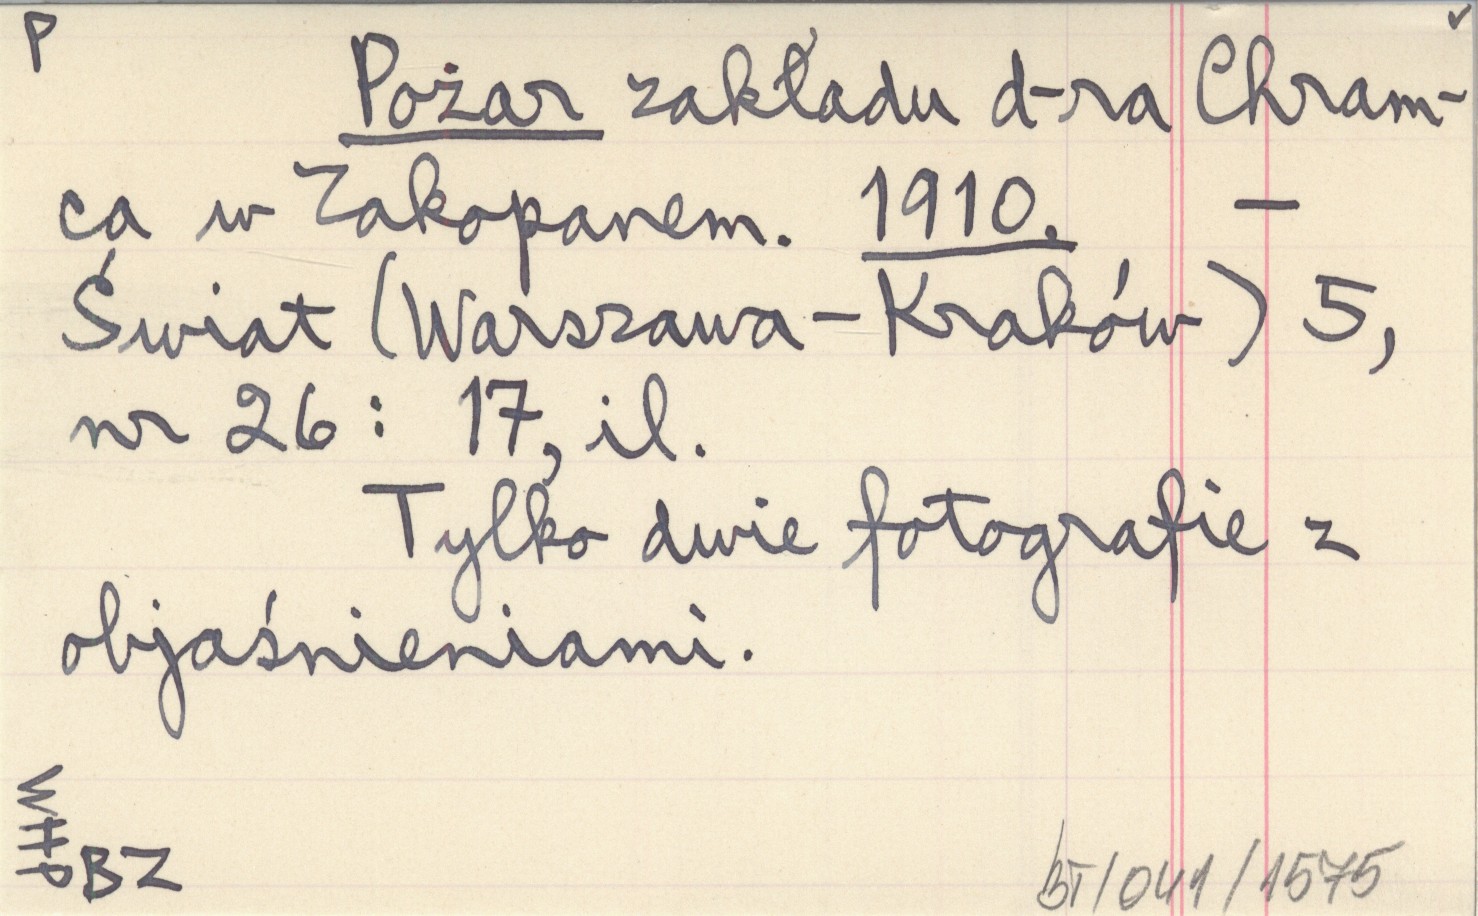 P
Pożar zakładu d-ra Chram-
ca w Zakopanem. 1910. —
Świat (Warszawa-Kraków) 5,
nr 26: 17, il.
Tylko dwie fotografie z
objaśnieniami.
BZ
BT/041/1575